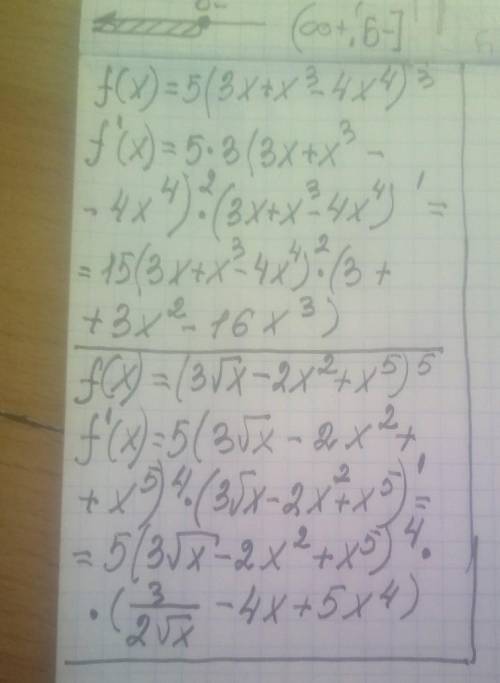 [-9; +∞)
f(x)=5(3x+x³-4x⁴)³
f'(x)=5·3(3x+x³-
-4x⁴)²·(3x+x³-4x⁴)'=
=15(3x+x³-4x⁴)²·(3+
+3x²-16x³)
f(x)=(3√x-2x²+x⁵)⁵
f'(x)=5(3√x-2x²+
+x⁵)⁴·(3√x-2x²+x⁵)'=
=5(3√x-2x²+x⁵)⁴·
·(3/(2√x)-4x+5x⁴)